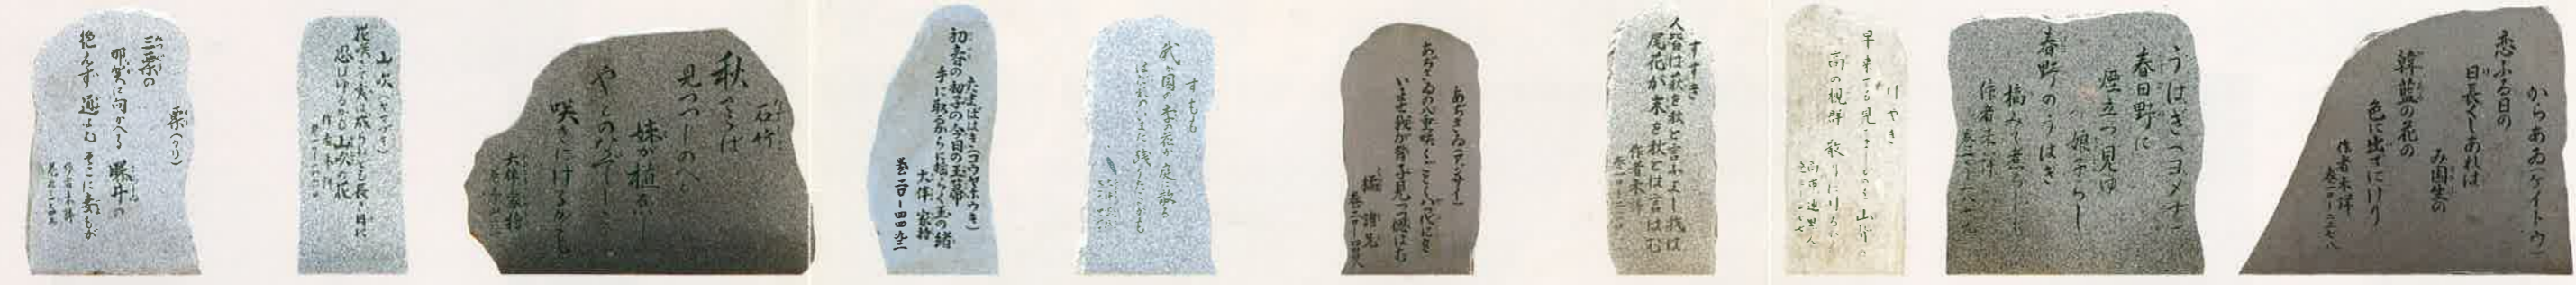 栗(クリ)
三栗の
那賀に向かへる 曝井の
絶えず通はむ そこに妻もが
作者未詳
巻九ー一七四五
山吹(ヤマブキ)
花咲きて実は成らねども長き日に
思ほゆるかも山吹の花
作者未詳
巻一〇ー一八六〇
石竹
秋さらば
見つつしのへと
妹が植ゑし
やどのなでしこ
咲きにけるかも
大伴家持
たまばはき(コウヤボウキ)
初春の初子の今日の玉箒
手に取るからに揺らく玉の緒
大伴家持
巻二〇ー四四九三
すもも
我が園の李の花か庭に散る
はだれのいまだ残りたるかも
あぢさゐ(アジサイ)
あぢさゐの八重咲くごとく八つ代にを
いませ我が背子見つつ偲はむ
橘諸兄
巻二〇ー四四四八
すすき
人皆は萩を秋と言ふよし我は
尾花が末を秋とは言はむ
作者未詳
巻一〇ー二一一〇
けやき
早来ても見てましものを山背の
高の槻群 散りにけるかも
高市連黒人
巻三ー二七七
うはぎ(ヨメナ)
春日野に
煙立つ見ゆ
娘子らし
春野のうはぎ
摘みて煮らしも
作者未詳
巻一〇ー一八七九
からあゐ(ケイトウ)
恋ふる日の
日長くしあれば
み園生の
韓藍の花の
色に出でにけり
作者未詳
巻一〇ー二二七八